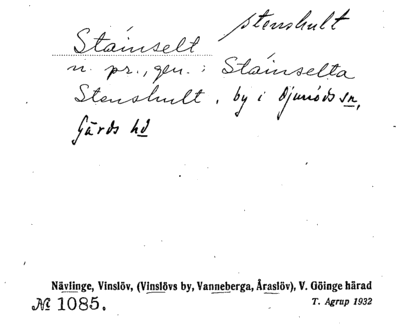 stenshult
Stáinselt
n. pr., gen.: Stáinselta
Stenshult, by i Djurröds sn,
Gärds hd
Nävlinge, Vinslöv, (Vinslövs by, Vanneberga, Åraslöv), V. Göinge härad
№ 1085. T. Agrup 1932